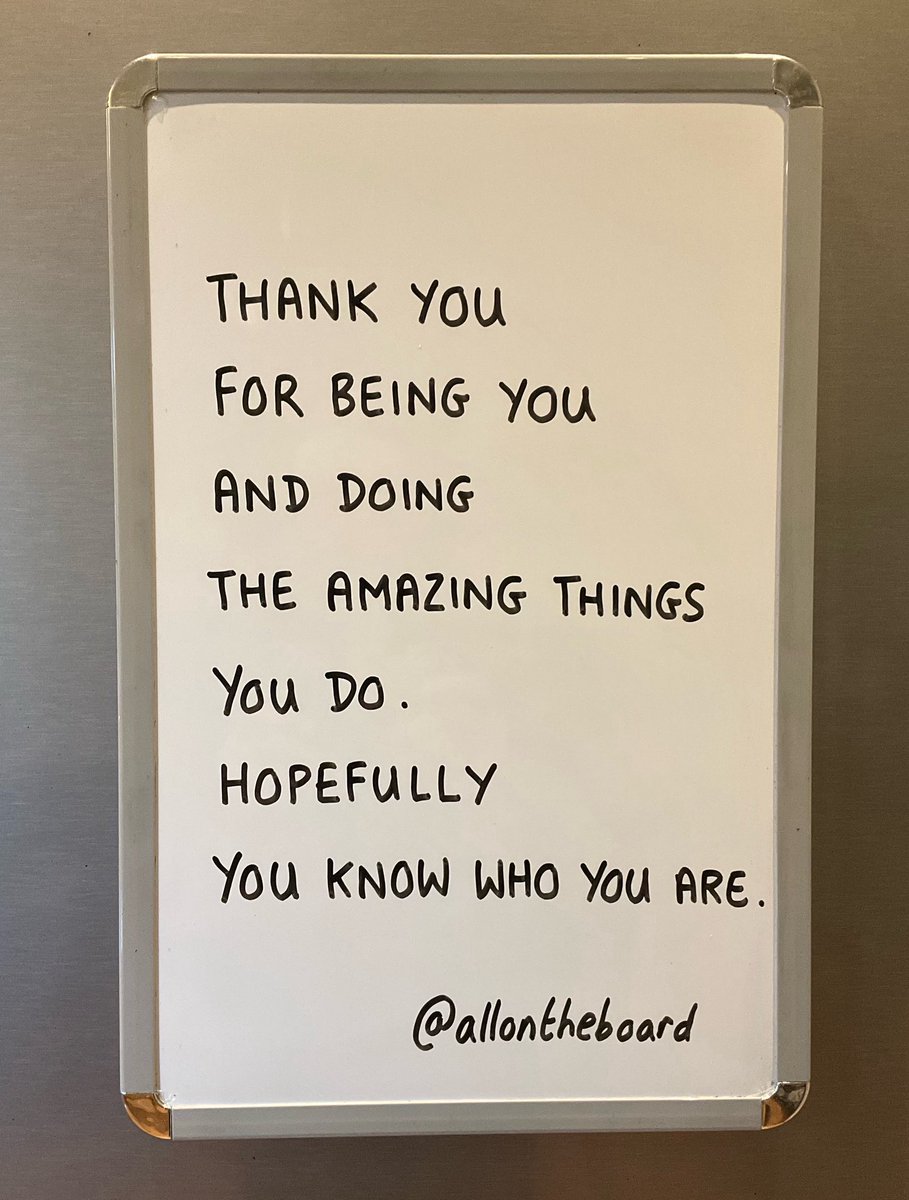 THANK YOU
FOR BEING YOU
AND DOING
THE AMAZING THINGS
YOU DO.
HOPEFULLY
YOU KNOW WHO YOU ARE.
@allontheboard